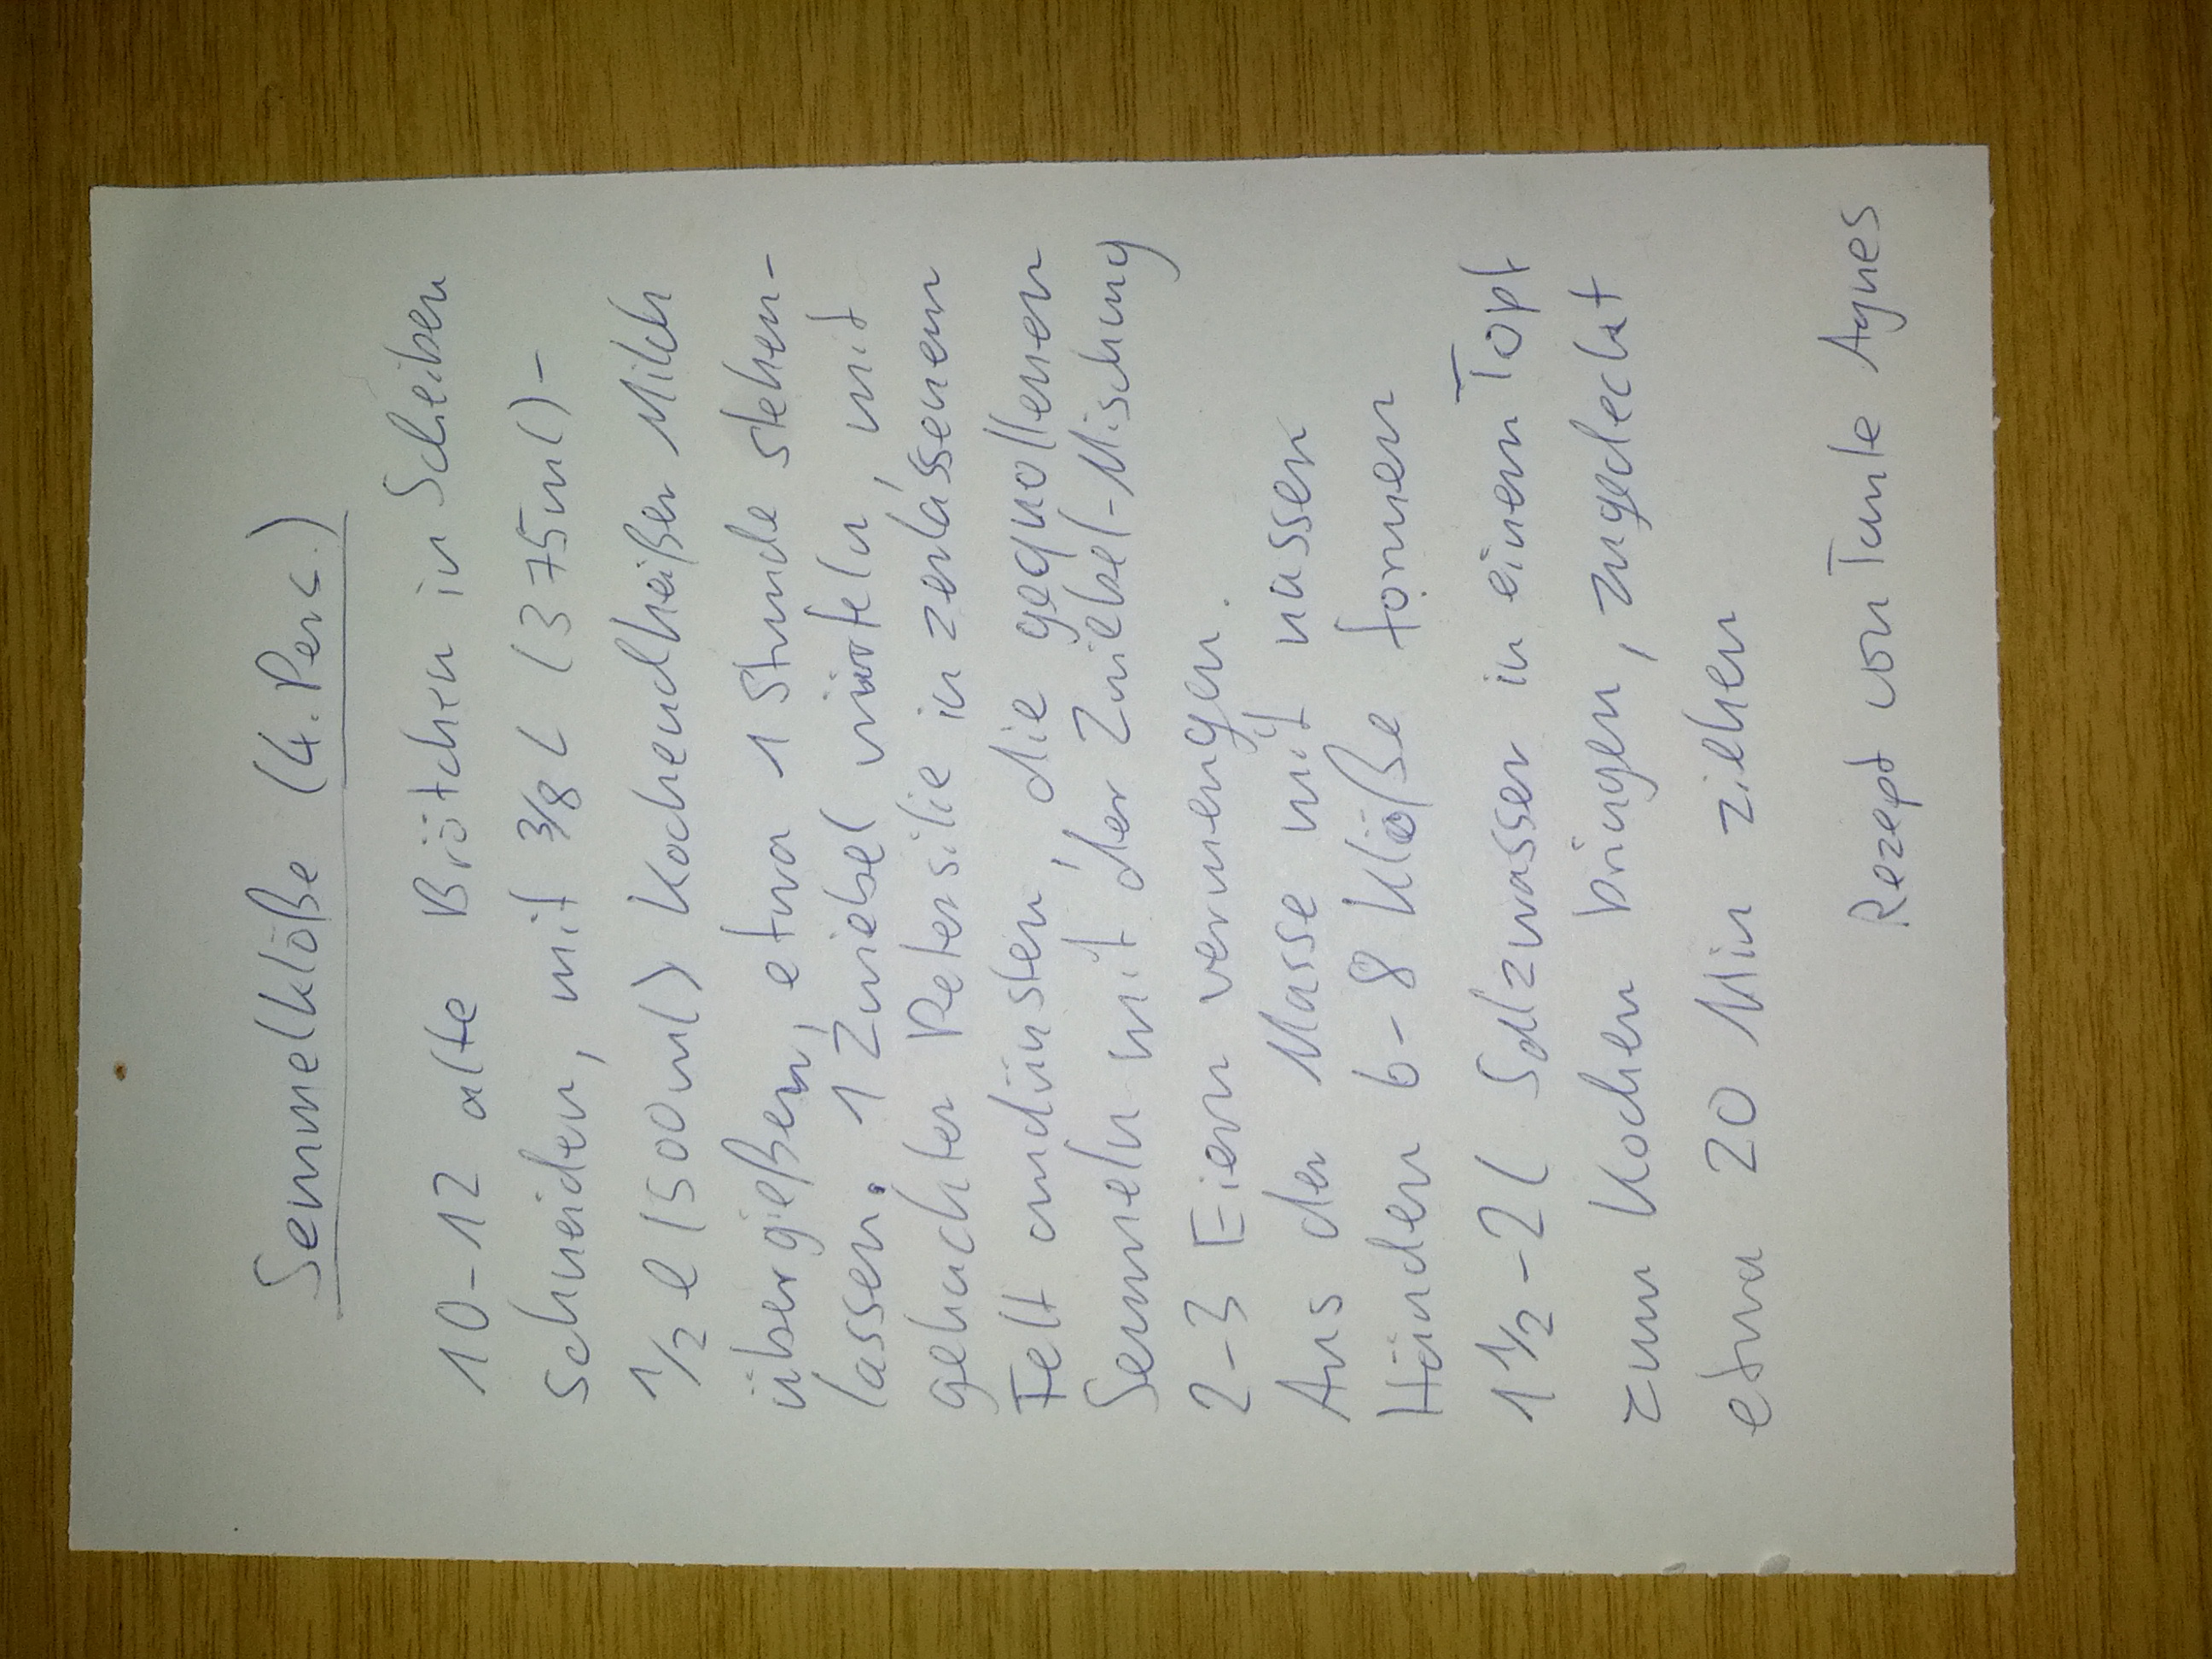 Semmelklöße (4. Pers.)
10-12 alte Brötchen in Scheiben
schneiden, mit 3/8 l (375ml)-
1/2 l (500ml) kochendheißer Milch
übergießen, etwa 1 Stunde stehen-
lassen. 1 Zwiebel vierteln, mit
gehackter Petersilie in zerlassenem
Fett andünsten, die gequollenen
Semmeln mit der Zwiebel-Mischung
2-3 Eiern vermengen.
Aus der Masse mit nassen
Händen 6-8 Klöße formen
1 1/2-2 l Salzwasser in einem Topf
zum kochen bringen, zugedeckt
etwa 20 Min ziehen
Rezept von Tante Agnes